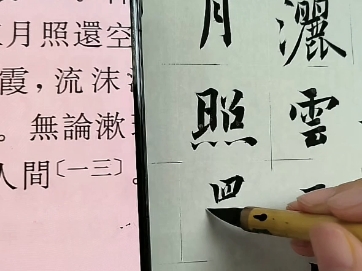 月照還空
霞，流沫
。無論漱
人間〔一三〕。
灑雲
月照